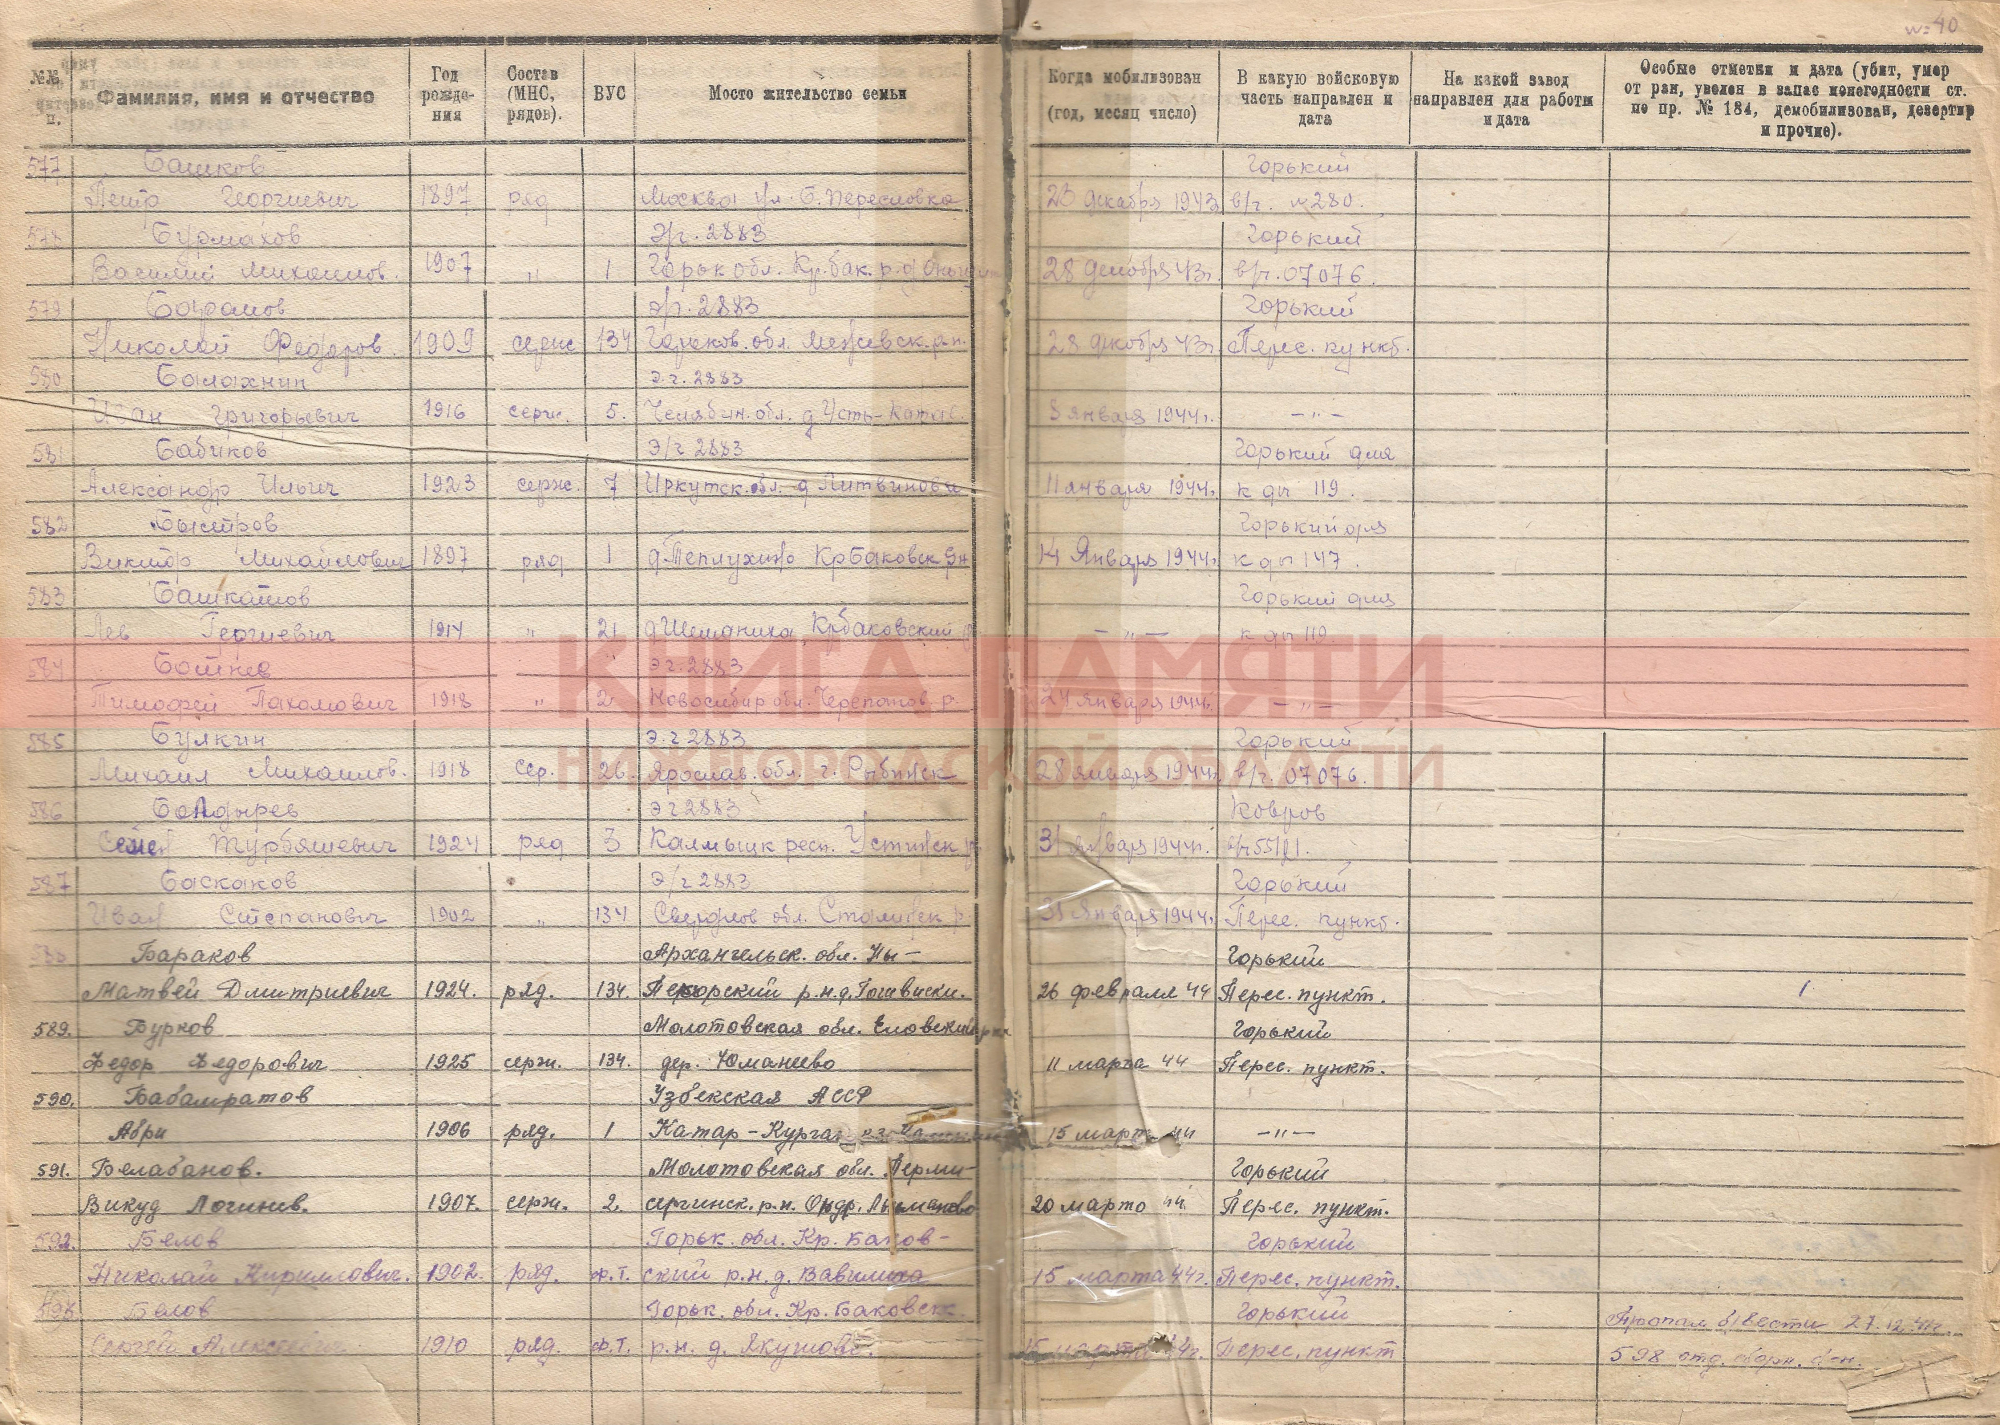 № 40
№№ п. Фамилия, имя и отчество Год рожде-ния Состав (МНС, рядов). ВУС Мосто жительство семьи Когда мобилизован (год, месяц число) В какую войсковую часть направлен и дата На какой завод направлен для работы и дата Особые отметки и дата (убит, умер от ран, уволен в запас по негодности ст. по пр. № 184, демобилизован, дезертир и прочие).
577 Башков Горький
Петр Георгиевич 1897 ряд Москва ул. Б. Переяловка 23 декабря 1943 в/ч. м280.
578 Бурмахов Э/г. 2883 Горький
Василий Михаилов. 1907 " 1 Горьк обл. Кр.бак. р. д 28 декабря 43г. в/ч. 07076.
579 э/г. 2883 Горький
Николай Федоров 1909 серж 134 Горьков. обл. р-н. 28 декабря 43г Перес. пункт.
580 Балахнин э.г. 2883
Иван Григорьевич 1916 серж. 5. Челябин. обл. д Усть-Катав. 8 января 1944г. — " —
581 Бабиков Э/г 2883 Горький для
Александр Ильич 1923 серж. 7 Иркутск. обл. д Литвинова 11 января 1944г. к ди 119.
582 Быстров Горький для
Виктор Михайлович 1897 ряд 1 д. Теплухино Крбаковск рн 14 Января 1944г. к ди 147.
583 Башкатов Горький для
Лев Гергиевич 1914 " 21 д Шеманиха, Крбаковский — " — к ди 119.
584 э г. 2883
Тимофей Пахомович 1918 " 2 Новосибир обл. Черепанов. р 24 января 1944г. — " —
585 Булкин э.г 2883 Горький
Михаил Михаилов. 1918 сер. 26. Ярослав. обл. г. Рыбинск 28 января 1944г. в/ч. 07076.
586 Бондырев э г 2883 Ковров
Семен 1924 ряд 3 Калмыцк респ. 31 января 1944г.
587 Баскаков Э/г 2883 Горький
Иван Степанович 1902 " 134 Свердлов обл. Сталинск р. 31 Января 1944г. Перес. пункт.
588 Бараков Архангельск. обл. Ны- Горький
Матвей Дмитриевич 1924. ряд. 134. р.н.д. 26 февраля 44 Перес. пункт.
589. Бурков Молотовская обл. Еловский Горький
Федор Федорович 1925 серж. 134. дер. Юманеево 11 марта 44 Перес. пункт.
590. Бабамратов Узбекская АССР
Абри 1906 ряд. 1 Катар-Курган 15 март 44 — " —
591. Белабанов. Молотовская обл. Верхи- Горький
Викуд Логинов. 1907. серж. 2. сергинск. р.н. 20 марта 44 Перес. пункт.
592. Белов Горьк. обл. Кр. Баков- Горький
Николай Кириллович. 1902. ряд. ф.т. ский р.н. д. Вавилиха 15 марта 44г. Перес. пункт.
593. Белов Горьк. обл. Кр. Баковск. Горький Пропал б/вести 27.12.44г.
Сергей Алексеевич 1910 ряд. ф.т. р.н. д. Якушово. 15 марта 44г. Перес. пункт 598 отд. б-н.
КНИГА ПАМЯТИ
НИЖЕГОРОДСКОЙ ОБЛАСТИ